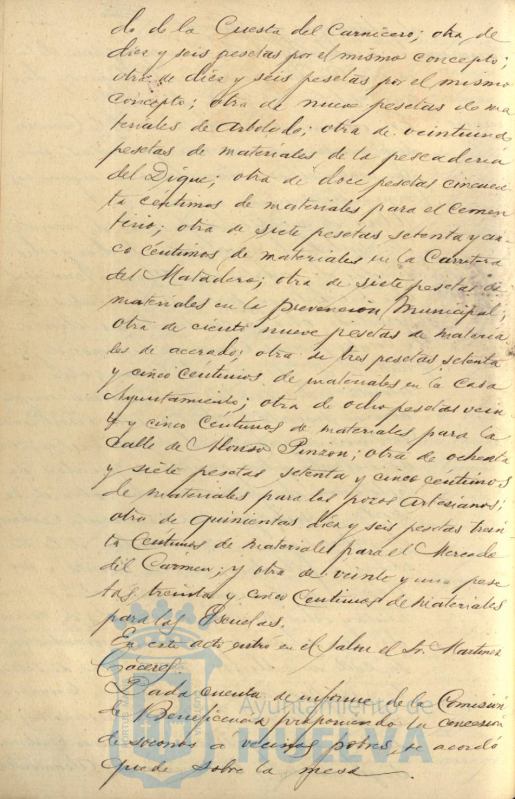 do de la Cuesta del Carnicero; otra de
diez y seis pesetas por el mismo concepto;
otra de diez y seis pesetas por el mismo
concepto; otra de nueve pesetas de ma
teriales de Arbolado; otra de veintiuna
pesetas de materiales de la pescaderia
del Dique; otra de doce pesetas cincuen
ta centimos de materiales para el Cemen
terio; otra de siete pesetas setenta y cin
co céntimos de materiales en la Carretera
del Matadero; otra de siete pesetas de
materiales en la prevención Municipal;
otra de ciento nueve pesetas de materia
les de acerado; otra de tres pesetas setenta
y cinco centimos de materiales en la Casa
Ayuntamiento; otra de ocho pesetas vein
te y cinco céntimos de materiales para la
Calle de Alonso Pinzon; otra de ochenta
y siete pesetas setenta y cinco céntimos
de materiales para los pozos Artesianos;
otra de quinientas diez y seis pesetas trein
ta centimos de materiales para el Mercado
del Carmen; y otra de veinte y una pese
tas treinta y cinco centimos de materiales
para las Escuelas.
En este acto entró en el Salon el Sr. Martinez
Cáceres.
Dada cuenta de informe de la Comisión
de Beneficencia proponiendo la concesión
de socorros a vecinos pobres, se acordó
quede sobre la mesa.
Ayuntamiento de
HUELVA